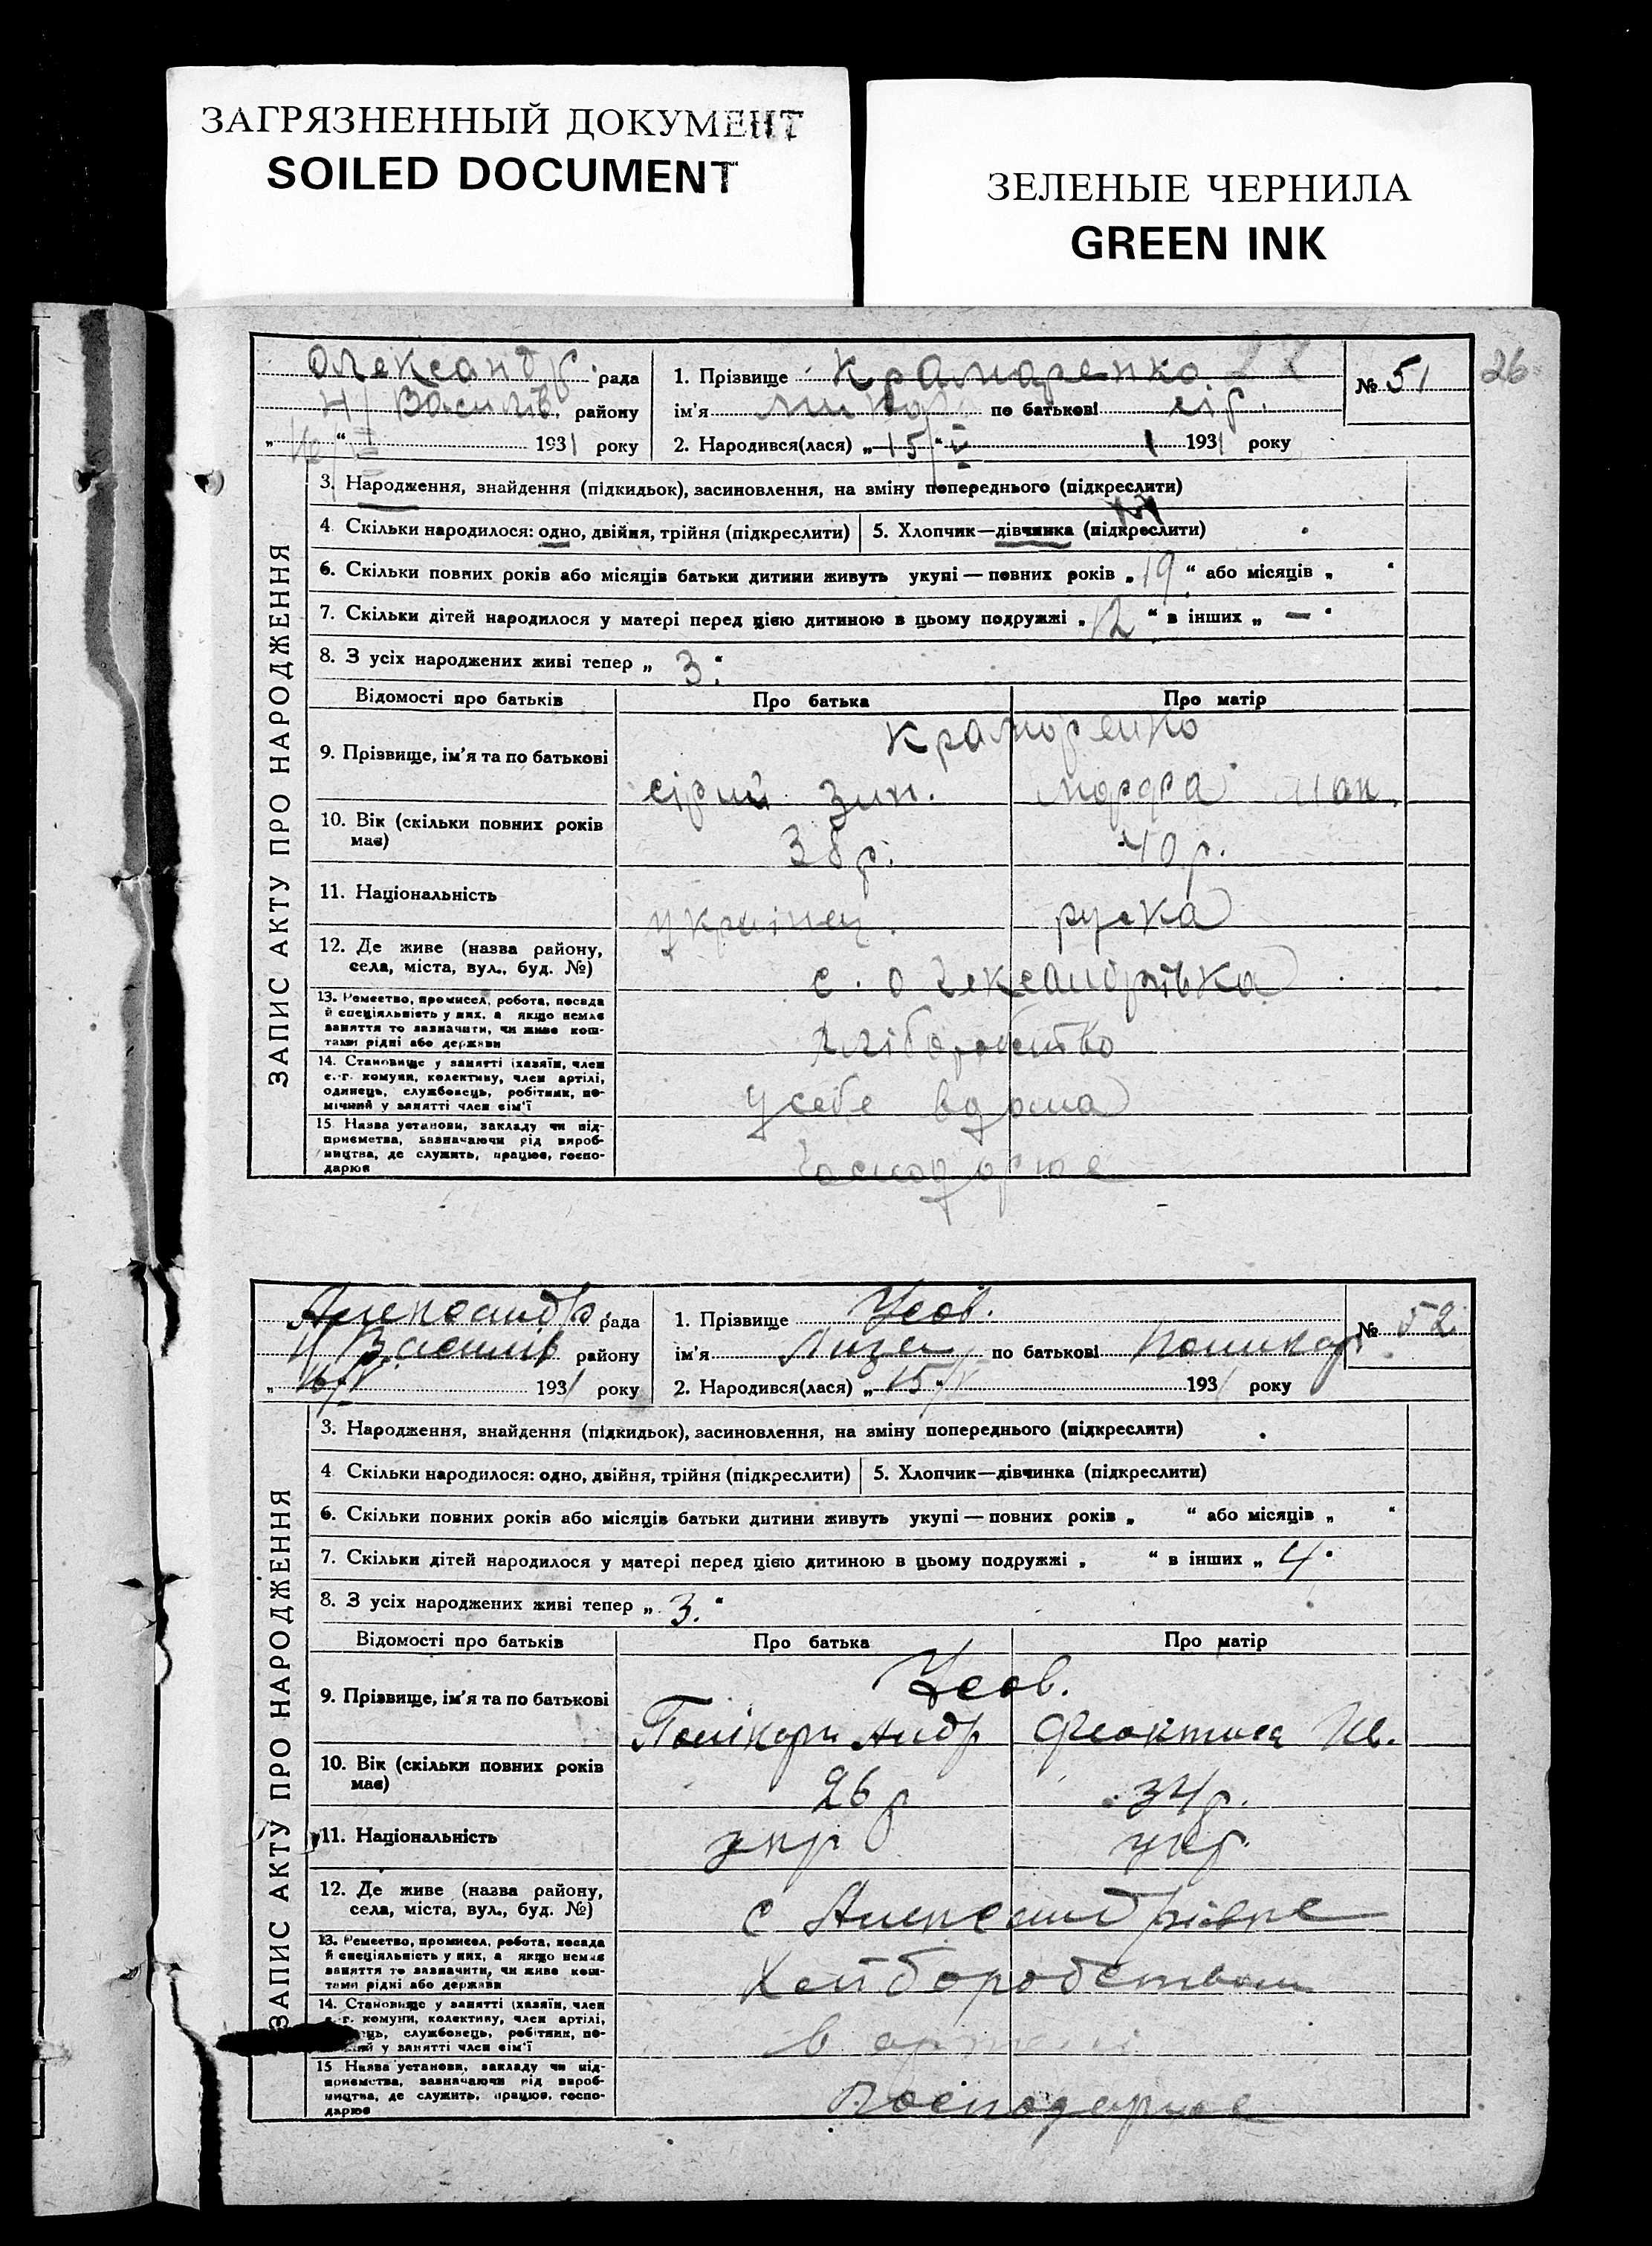 ЗАГРЯЗНЕННЫЙ ДОКУМЕНТ
SOILED DOCUMENT
ЗЕЛЕНЫЕ ЧЕРНИЛА
GREEN INK
26
ЗАПИС АКТУ ПРО НАРОДЖЕННЯ
Олександр рада
Н/Василів. району
" 16/V " 1931 року
1. Прізвище Крамаренко
ім'я по батькові сір.
2. Народився(лася) „15/V" 1931 року
№ 51
3. Народження, знайдення (підкидьок), засиновлення, на зміну попереднього (підкреслити)
4. Скільки народилося: одно, двійня, трійня (підкреслити) 5. Хлопчик—дівчинка (підкреслити)
6. Скільки повних років або місяців батьки дитини живуть укупі — повних років „19" або місяців „ "
7. Скільки дітей народилося у матері перед цією дитиною в цьому подружжі „12" в інших „—"
8. З усіх народжених живі тепер „3."
Відомості про батьків Про батька Про матір
9. Прізвище, ім'я та по батькові Крамаренко
сірий Зин.
10. Вік (скільки повних років має) 38 р. 40 р.
11. Національність українец. руска
12. Де живе (назва району, села, міста, вул., буд. №) с. Олександрівка
13. Ремество, промисел, робота, посада й спеціяльність у них, а якщо немає заняття то зазначити, чи живе коштами рідні або держави Хліборобство
14. Становище у занятті (хазяїн, член с.-г. комуни, колективу, член артілі, одинець, службовець, робітник, помічний у занятті член сім'ї у себе вдома
15. Назва установи, закладу чи підприємства, зазначаючи рід виробництва, де служить, працює, господарює Господорює
ЗАПИС АКТУ ПРО НАРОДЖЕННЯ
Александр рада
Н/Василів району
„ 16/V " 1931 року
1. Прізвище Усов.
ім'я по батькові Поликар
2. Народився(лася) „15/V" 1931 року
№ 52
3. Народження, знайдення (підкидьок), засиновлення, на зміну попереднього (підкреслити)
4. Скільки народилося: одно, двійня, трійня (підкреслити) 5. Хлопчик—дівчинка (підкреслити)
6. Скільки повних років або місяців батьки дитини живуть укупі — повних років „ " або місяців „ "
7. Скільки дітей народилося у матері перед цією дитиною в цьому подружжі „ " в інших „4"
8. З усіх народжених живі тепер „3."
Відомості про батьків Про батька Про матір
9. Прізвище, ім'я та по батькові Усов.
Полікарп Андр Феоктиса Ив.
10. Вік (скільки повних років має) 26 р 34 р.
11. Національність укр укр.
12. Де живе (назва району, села, міста, вул., буд. №) с Александрівке
13. Ремество, промисел, робота, посада й спеціяльність у них, а якщо немає заняття то зазначити, чи живе коштами рідні або держави Хлиборобством
14. Становище у занятті (хазяїн, член с.-г. комуни, колективу, член артілі, одинець, службовець, робітник, помічний у занятті член сім'ї в артілі
15 Назва установи, закладу чи підприємства, зазначаючи рід виробництва, де служить, працює, господарює Господарює